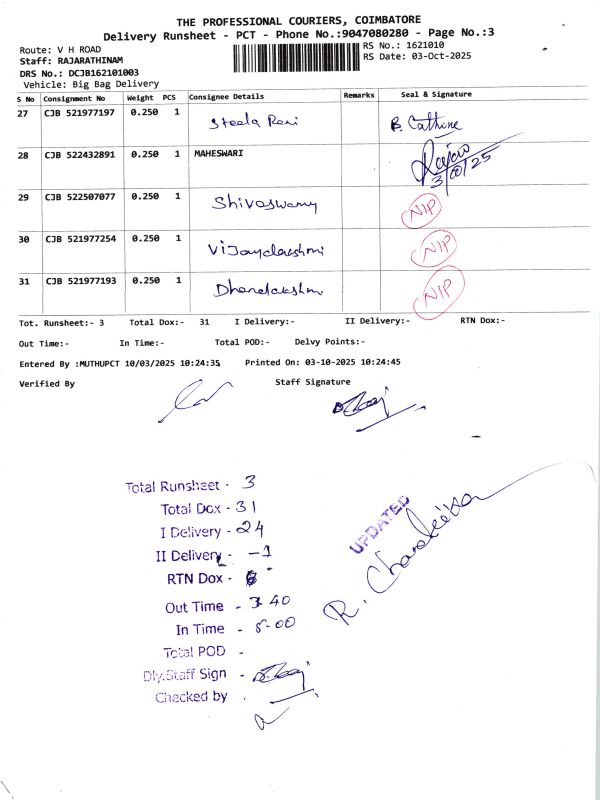 THE PROFESSIONAL COURIERS, COIMBATORE
Delivery Runsheet - PCT - Phone No.:9047080280 - Page No.:3
Route: V H ROAD
RS No.: 1621010
Staff: RAJARATHINAM
RS Date: 03-Oct-2025
DRS No.: DCJB162101003
Vehicle: Big Bag Delivery
S No Consignment No Weight PCS Consignee Details Remarks Seal & Signature
27 CJB 521977197 0.250 1 Steela Rani B. Cathrine
28 CJB 522432891 0.250 1 MAHESWARI
3/10/25
29 CJB 522507077 0.250 1 Shivaswamy NIP
30 CJB 521977254 0.250 1 Vijayalakshmi NIP
31 CJB 521977193 0.250 1 Dhanalakshmi NIP
Tot. Runsheet:- 3 Total Dox:- 31 I Delivery:- II Delivery:- RTN Dox:-
Out Time:- In Time:- Total POD:- Delvy Points:-
Entered By :MUTHUPCT 10/03/2025 10:24:35 Printed On: 03-10-2025 10:24:45
Verified By Staff Signature
Total Runsheet - 3
Total Dox - 31
I Delivery - 24
II Delivery - -1
RTN Dox - 6
Out Time - 3.40
In Time - 5.00
Total POD -
Dly.Staff Sign -
Checked by -
UPDATED